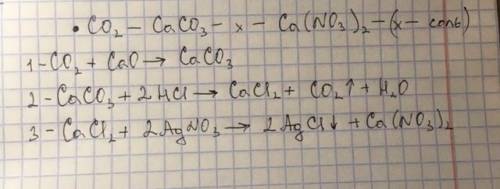 • CO₂ – CaCO₃ – x – Ca(NO₃)₂ – (x – соль)
1 – CO₂ + CaO → CaCO₃
2 – CaCO₃ + 2HCl → CaCl₂ + CO₂↑ + H₂O
3 – CaCl₂ + 2AgNO₃ → 2AgCl↓ + Ca(NO₃)₂